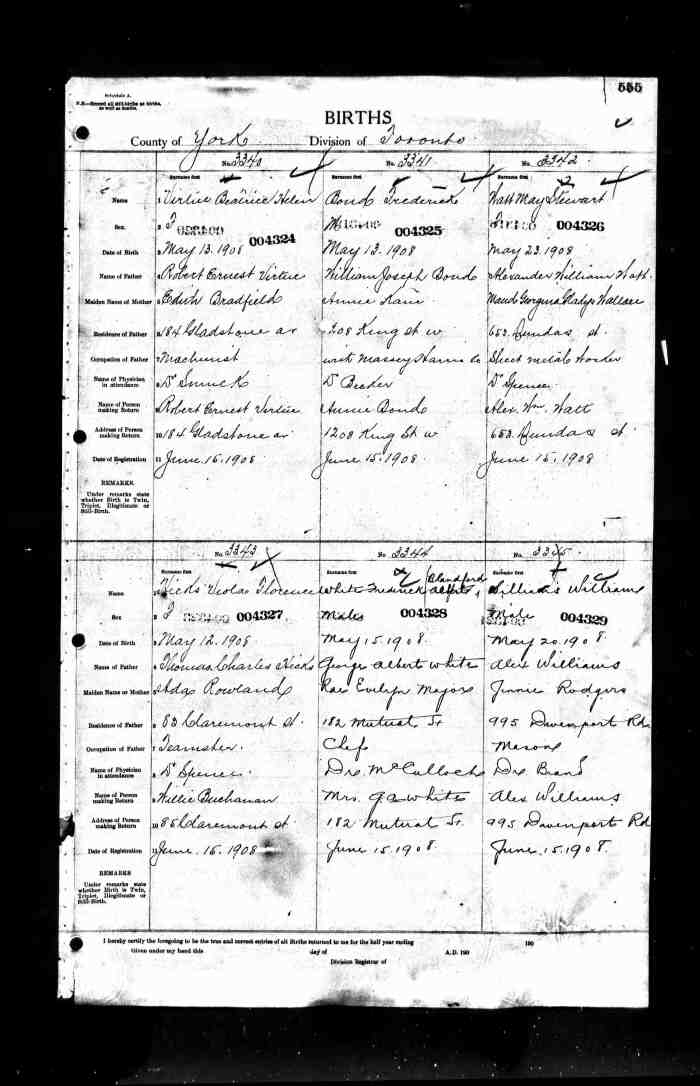 Schedule A.
N.B.—Record all Still-births as births, as well as deaths.
555
BIRTHS
County of York Division of Toronto
No. 3340 No. 3341 No. 3342
Surname first Surname first Surname first
Name Virtue Beatrice Helen Bond Frederick Watt May Stewart
Sex. F M
004324 004325 004326
Date of Birth May 13. 1908 May 13. 1908 May 23. 1908
Name of Father Robert Ernest Virtue William Joseph Bond Alexander William Watt
Maiden Name of Mother Edith Bradfield Annie Wallace
Residence of Father 184 Gladstone av 1208 King St w 653 Dundas st.
Occupation of Father Machinist with Massey Harris Co Sheet metal Worker
Name of Physician in attendance Dr Dr Dr Spence
Name of Person making Return Robert Ernest Virtue Annie Bond Alex. Wm. Watt
Address of Person making Return 184 Gladstone av 1208 King St w 653 Dundas st
Date of Registration June 16. 1908 June 15. 1908 June 15. 1908
REMARKS.
Under remarks state whether Birth is Twin, Triplet, Illegitimate or Still-Birth.
No. 3343 No. 3344 No. 3345
Surname first Surname first Surname first
Name Hicks Viola Florence White Frederick Blandford Albert Williams William
Sex F Male Male
004327 004328 004329
Date of Birth May 12. 1908 May 15. 1908. May 20. 1908
Name of Father Thomas Charles Hicks George Albert White Alex Williams
Maiden Name or Mother Ada Rowland Rae Evelyn Majors Jennie Rodgers
Residence of Father 83 Claremont st. 182 Mutual St 995 Davenport Rd
Occupation of Father Teamster. Chef Mason
Name of Physician in attendance Dr Spence Dre McCulloch Dre Brand
Name of Person making Return Willie Buchanan Mrs. G A White Alex Williams
Address of Person making Return 85 Claremont st 182 Mutual St. 995 Davenport Rd
Date of Registration June. 16. 1908 June 15. 1908 June. 15. 1908.
REMARKS
Under remarks state whether Birth is Twin, Triplet, Illegitimate or Still-Birth.
I hereby certify the foregoing to be the true and correct entries of all Births returned to me for the half year ending 190
Given under my hand this day of A.D. 190
Division Registrar of